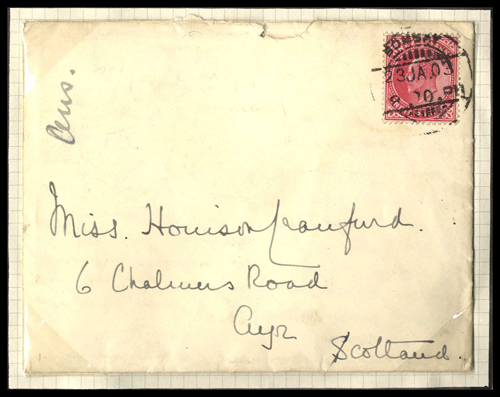 BOMBAY
23JA.03
Ans.
Miss. Houison Craufurd.
6 Chalmers Road
Ayr
Scotland.